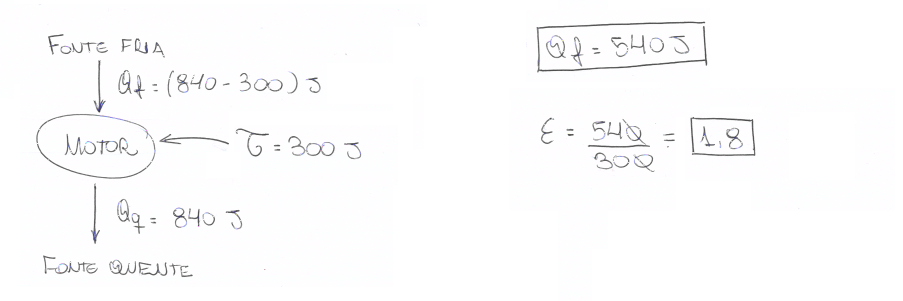 FONTE FRIA
Qf = (840 - 300) J
MOTOR
τ = 300 J
Qq = 840 J
FONTE QUENTE
Qf = 540 J
ε = 540/300 = 1,8